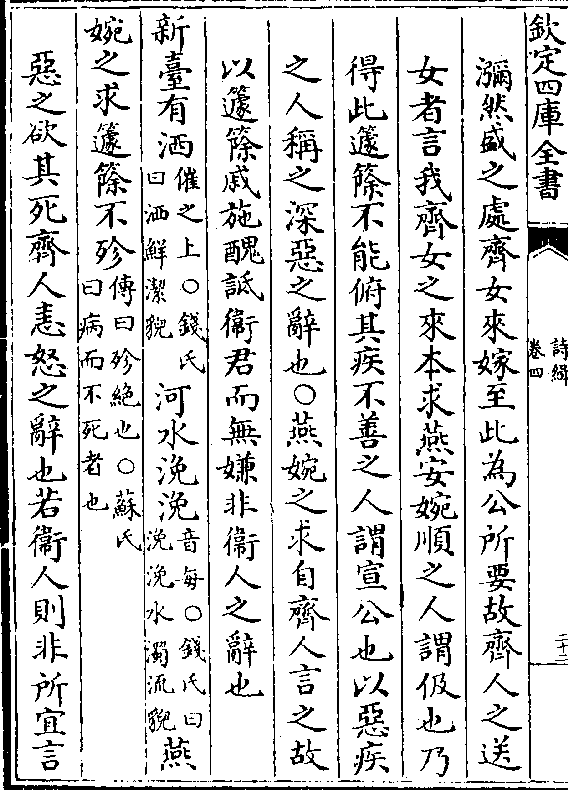 欽定四庫全書
詩緝
卷四
二十三
瀰然盛之處齊女來嫁至此為公所要故齊人之送
女者言我齊女之來本求燕安婉順之人謂伋也乃
得此籧篨不能俯其疾不善之人謂宣公也以惡疾
之人稱之深惡之辭也○燕婉之求自齊人言之故
以籧篨戚施醜詆衛君而無嫌非衛人之辭也
新臺有洒催之上○錢氏曰洒鮮潔貌河水浼浼音每○錢氏曰浼浼水濁流貌燕
婉之求籧篨不殄傳曰殄絶也○蘇氏曰病而不死者也
惡之欲其死齊人恚怒之辭也若衛人則非所宜言